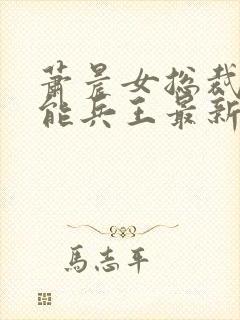 萧晨女总裁
能兵王最新
马志平